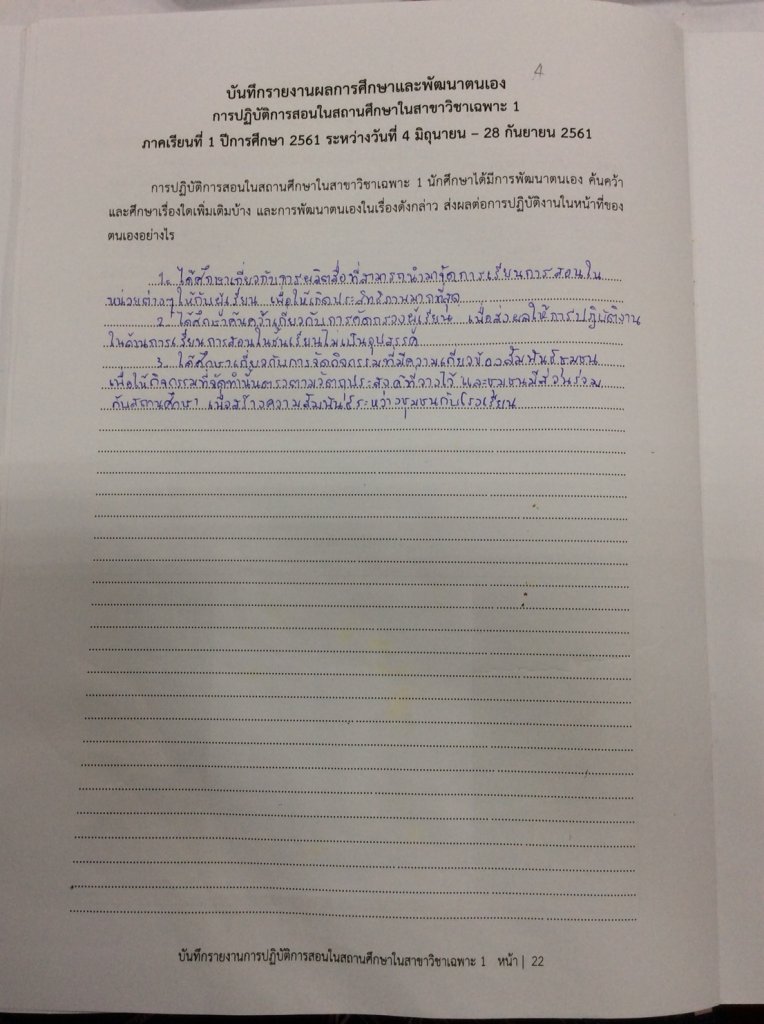 4
บันทึกรายงานผลการศึกษาและพัฒนาตนเอง
การปฏิบัติการสอนในสถานศึกษาในสาขาวิชาเฉพาะ 1
ภาคเรียนที่ 1 ปีการศึกษา 2561 ระหว่างวันที่ 4 มิถุนายน – 28 กันยายน 2561
การปฏิบัติการสอนในสถานศึกษาในสาขาวิชาเฉพาะ 1 นักศึกษาได้มีการพัฒนาตนเอง ค้นคว้า
และศึกษาเรื่องใดเพิ่มเติมบ้าง และการพัฒนาตนเองในเรื่องดังกล่าว ส่งผลต่อการปฏิบัติงานในหน้าที่ของ
ตนเองอย่างไร
1. ได้ศึกษาเกี่ยวกับการผลิตสื่อที่สามารถนำมาจัดการเรียนการสอนใน
หน่วยต่างๆ ให้กับผู้เรียน เพื่อให้เกิดประสิทธิภาพมากที่สุด
2. ได้ศึกษาค้นคว้าเกี่ยวกับการคัดกรองผู้เรียน เพื่อส่งผลให้การปฏิบัติงาน
ในด้านการเรียนการสอนในชั้นเรียนไม่เป็นอุปสรรค์
3. ได้ศึกษาเกี่ยวกับการจัดกิจกรรมที่มีความเกี่ยวข้องสัมพันธ์ชุมชน
เพื่อให้กิจกรรมที่จัดทำนั้นตรงตามวัตถุประสงค์ที่วางไว้ และชุมชนมีส่วนร่วม
กับสถานศึกษา เพื่อสร้างความสัมพันธ์ระหว่างชุมชนกับโรงเรียน
บันทึกรายงานการปฏิบัติการสอนในสถานศึกษาในสาขาวิชาเฉพาะ 1 หน้า | 22